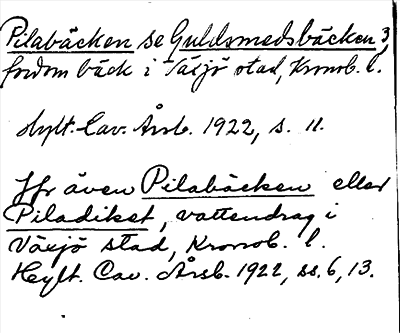 Pilabäcken se Guldsmedsbäcken 3,
fordom bäck i Växjö stad, Kronob. l.
Hylt. Cav. Årsb. 1922, s. 11.
Jfr även Pilabäcken eller
Piladiket, vattendrag i
Växjö stad, Kronob. l.
Heylt. Cav. Årsb. 1922, ss. 6, 13.